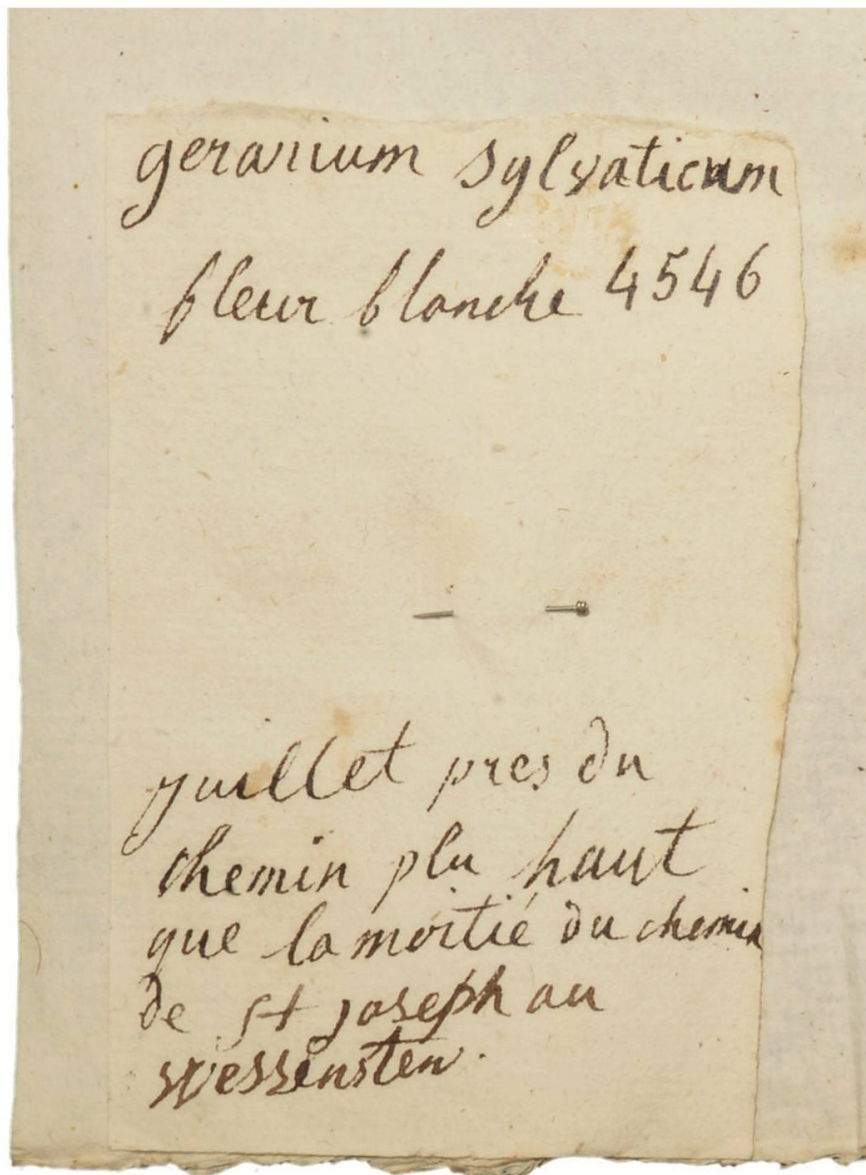 geranium sylvaticum
fleur blanche 4546
juillet pres du
chemin plu haut
que la moitié du chemin
de st joseph au
wessensten.